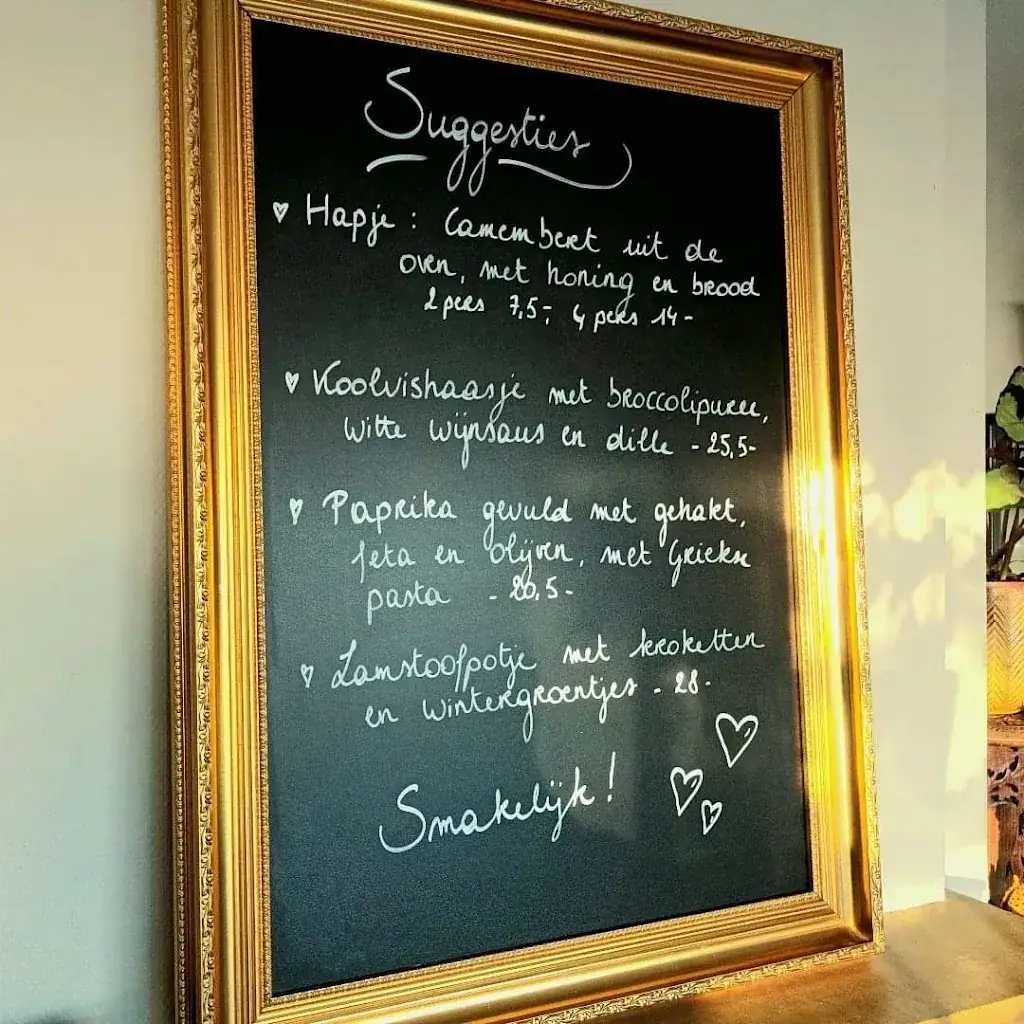 Suggesties
Hapje : Camembert uit de
oven, met honing en brood
2 pers 7,5-, 4 pers 14-
Koolvishaasje met broccolipuree,
witte wijnsaus en dille - 25,5-
Paprika gevuld met gehakt,
feta en olijven, met Griekse
pasta - 20,5-
Lamstoofpotje met kroketten
en wintergroentjes - 28-
Smakelijk!